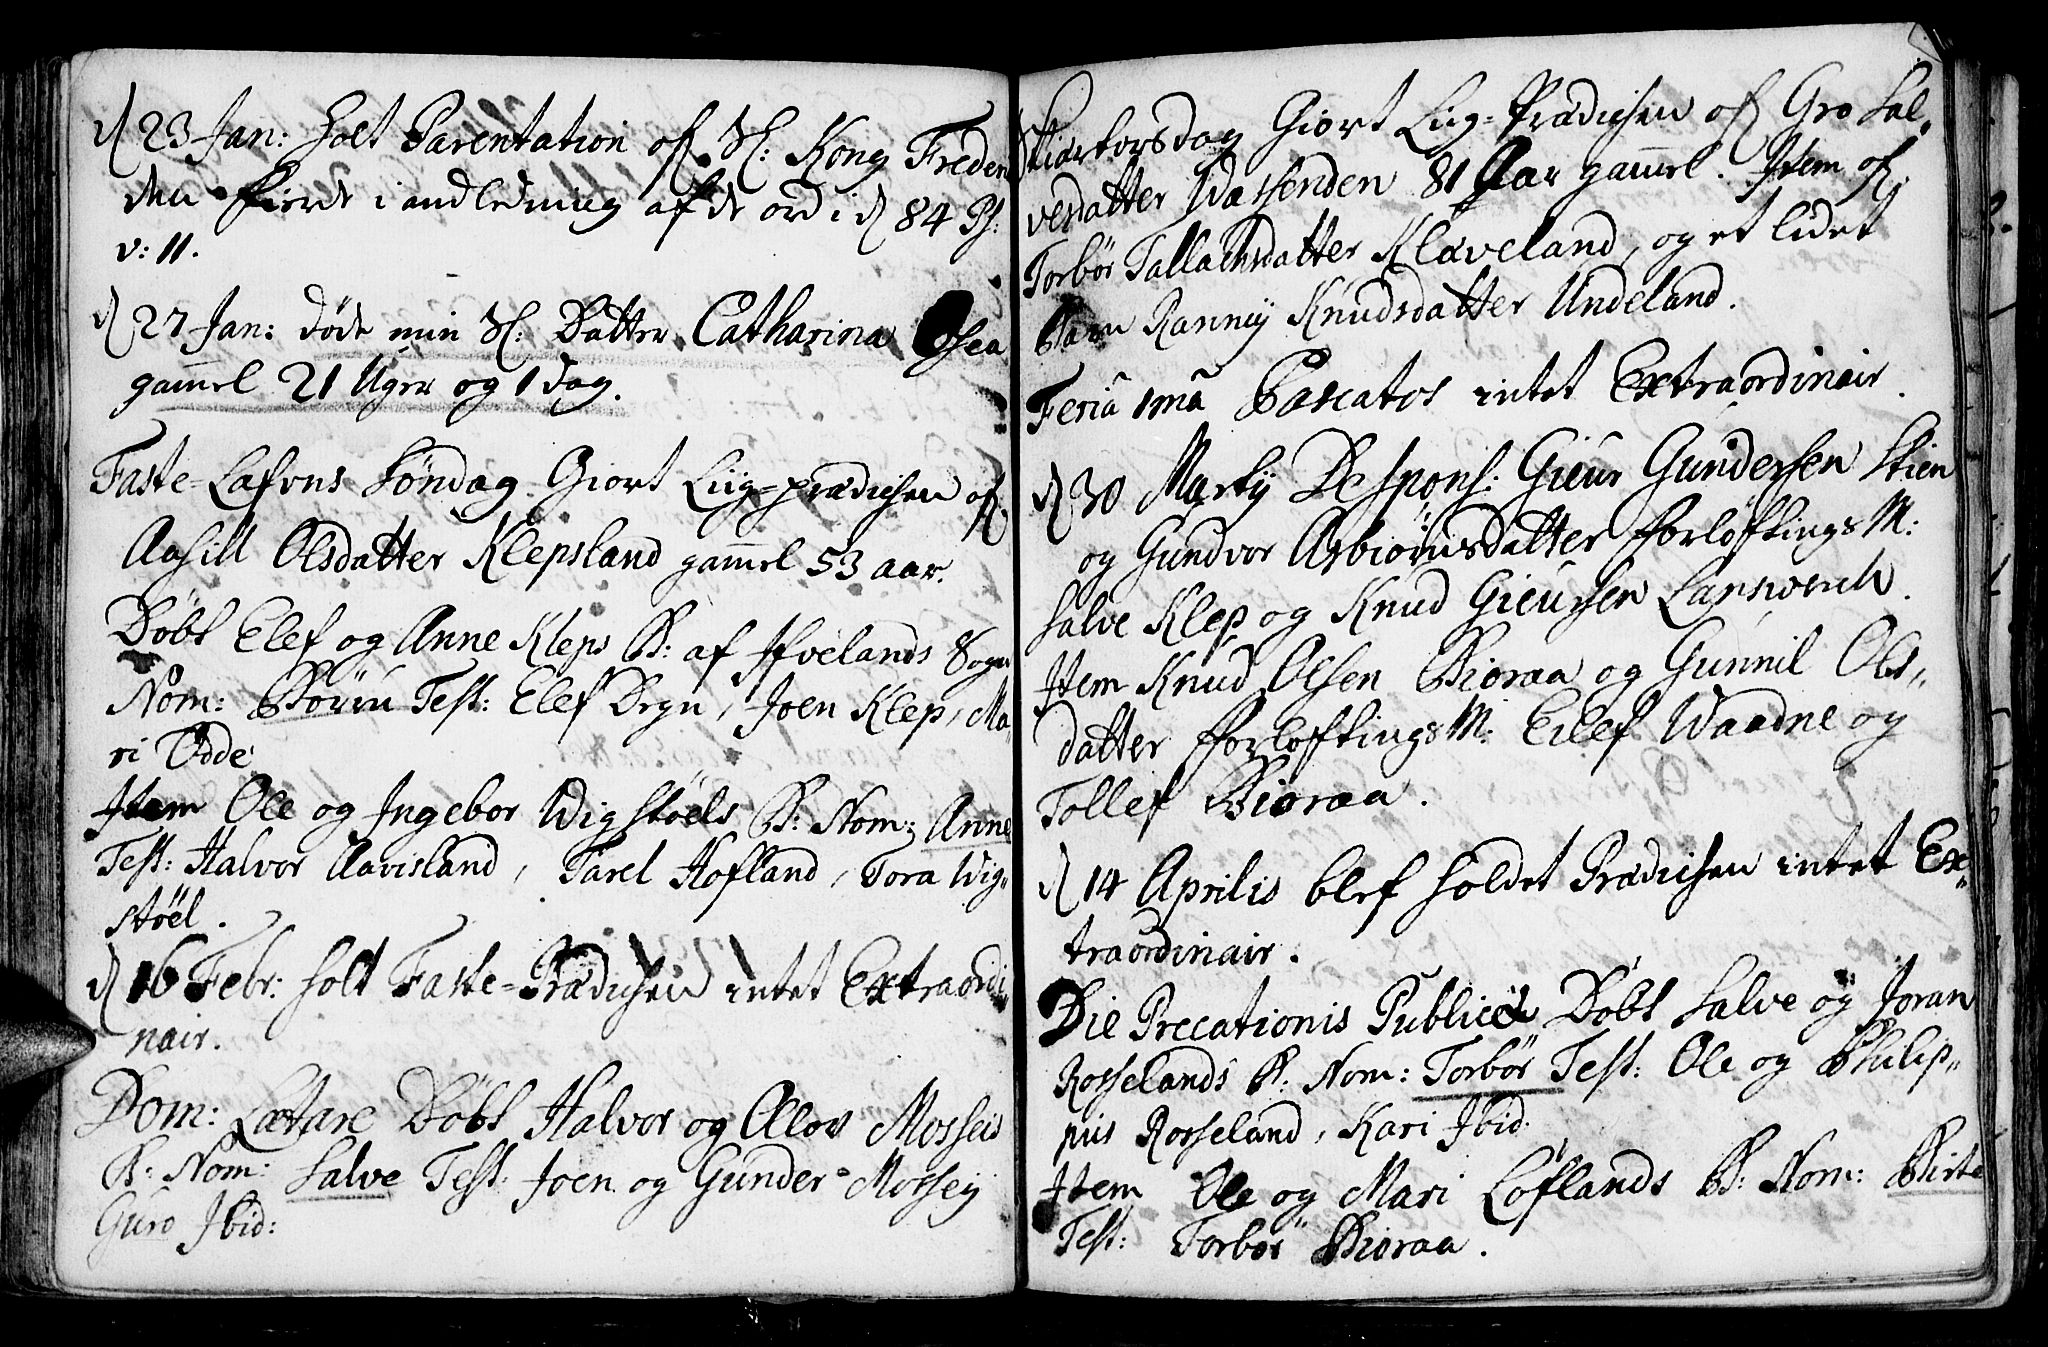 d 23 Jan: holt Parentation ofr Sl: Kong Frederi
den fierde i andledning af de ord i d 84 Ps:
v: 11.
d 27 Jan: døde min Sl: Datter Catharina
gam̄el 21 Uger og 1 dag.
Faste-Lafvns Søndag Giort Liig-prædichen ofr
Aasill Olsdatter Klepsland gam̄el 53 aar.
Døbt Elef og Anne Kleps B: af Hvelands Sogn
Nom: Test: Elef Degn, Joen Klep, Ma-
ri Odde
Item Ole og Ingebor Wigstøels B: Nom: Anne
Test: Halvor Aavisland, Tarel Hofland, Tora Wig-
støel.
d 16 Febr: holt Faste-Prædichen intet Extraordi-
nair.
Dom: Lætare Døbt Halvor og Alov Mosseis
B: Nom: Salve Test: Joen og Gunder Mossey
Guro Ibid:
Skiærtorsdag Giort Liig-Prædichen ofr Gro Sal-
vesdatter 81 Aar gam̄el. Item ofr
Torbør Tallachsdatter Klaveland, og et lidet
Barn Ranney Knudsdatter Undeland.
Feria 1ma Pascatos intet Extraordinair.
d 30 Marty Despons: Gieur Gundersen Skien
og Gundvor Asbiørnsdatter forløftings M:
Salve Klep og Knud Gieursen Lansverch.
Item Knud Olsen Bioraa og Gunnil Ols-
datter forløftings M: Eilef Waadne og
Tollef Bioraa.
d 14 Aprilis blef holdet Prædichen intet Ex-
traordinair.
Die Precationis Publicæ Døbt Salve og Joran
Rosselands B: Nom: Torbør Test: Ole og Philip-
pus Rosseland, Kari Ibid.
Item Ole og Mari Løflands B: Nom: Birte
Test: Torbør Bioraa.